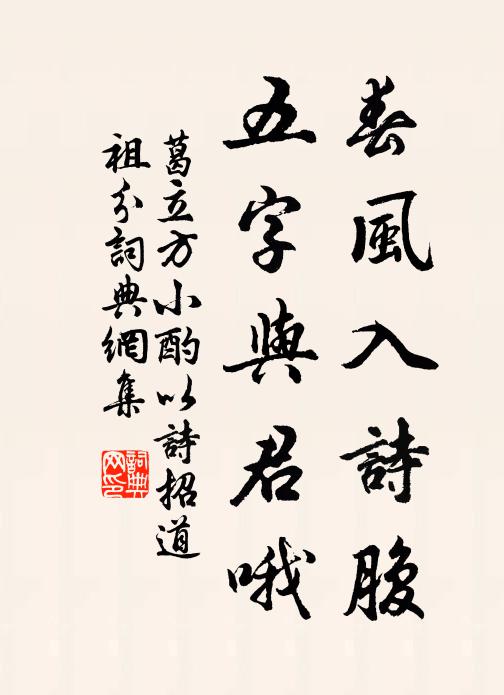 春風入詩腹
五字與君哦
葛立方小酌以詩招道
祖分詞典網集
詞典
网印